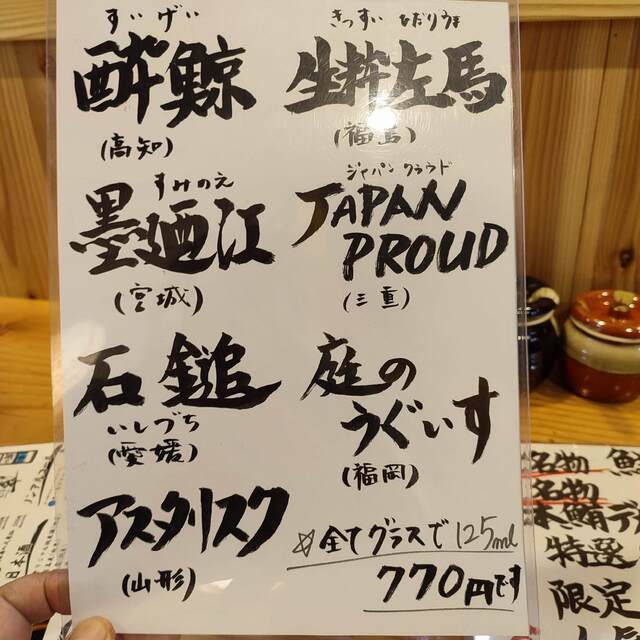 すいげい
酔鯨
(高知)
きっすい ひだりうま
生粋左馬
(福島)
すみのえ
墨廼江
(宮城)
ジャパン プラウド
JAPAN
PROUD
(三重)
石鎚
いしづち
(愛媛)
庭の
うぐいす
(福岡)
アスタリスク
(山形)
☆全てグラスで125ml
770円です
名物
名物
本鮪
特選
限定